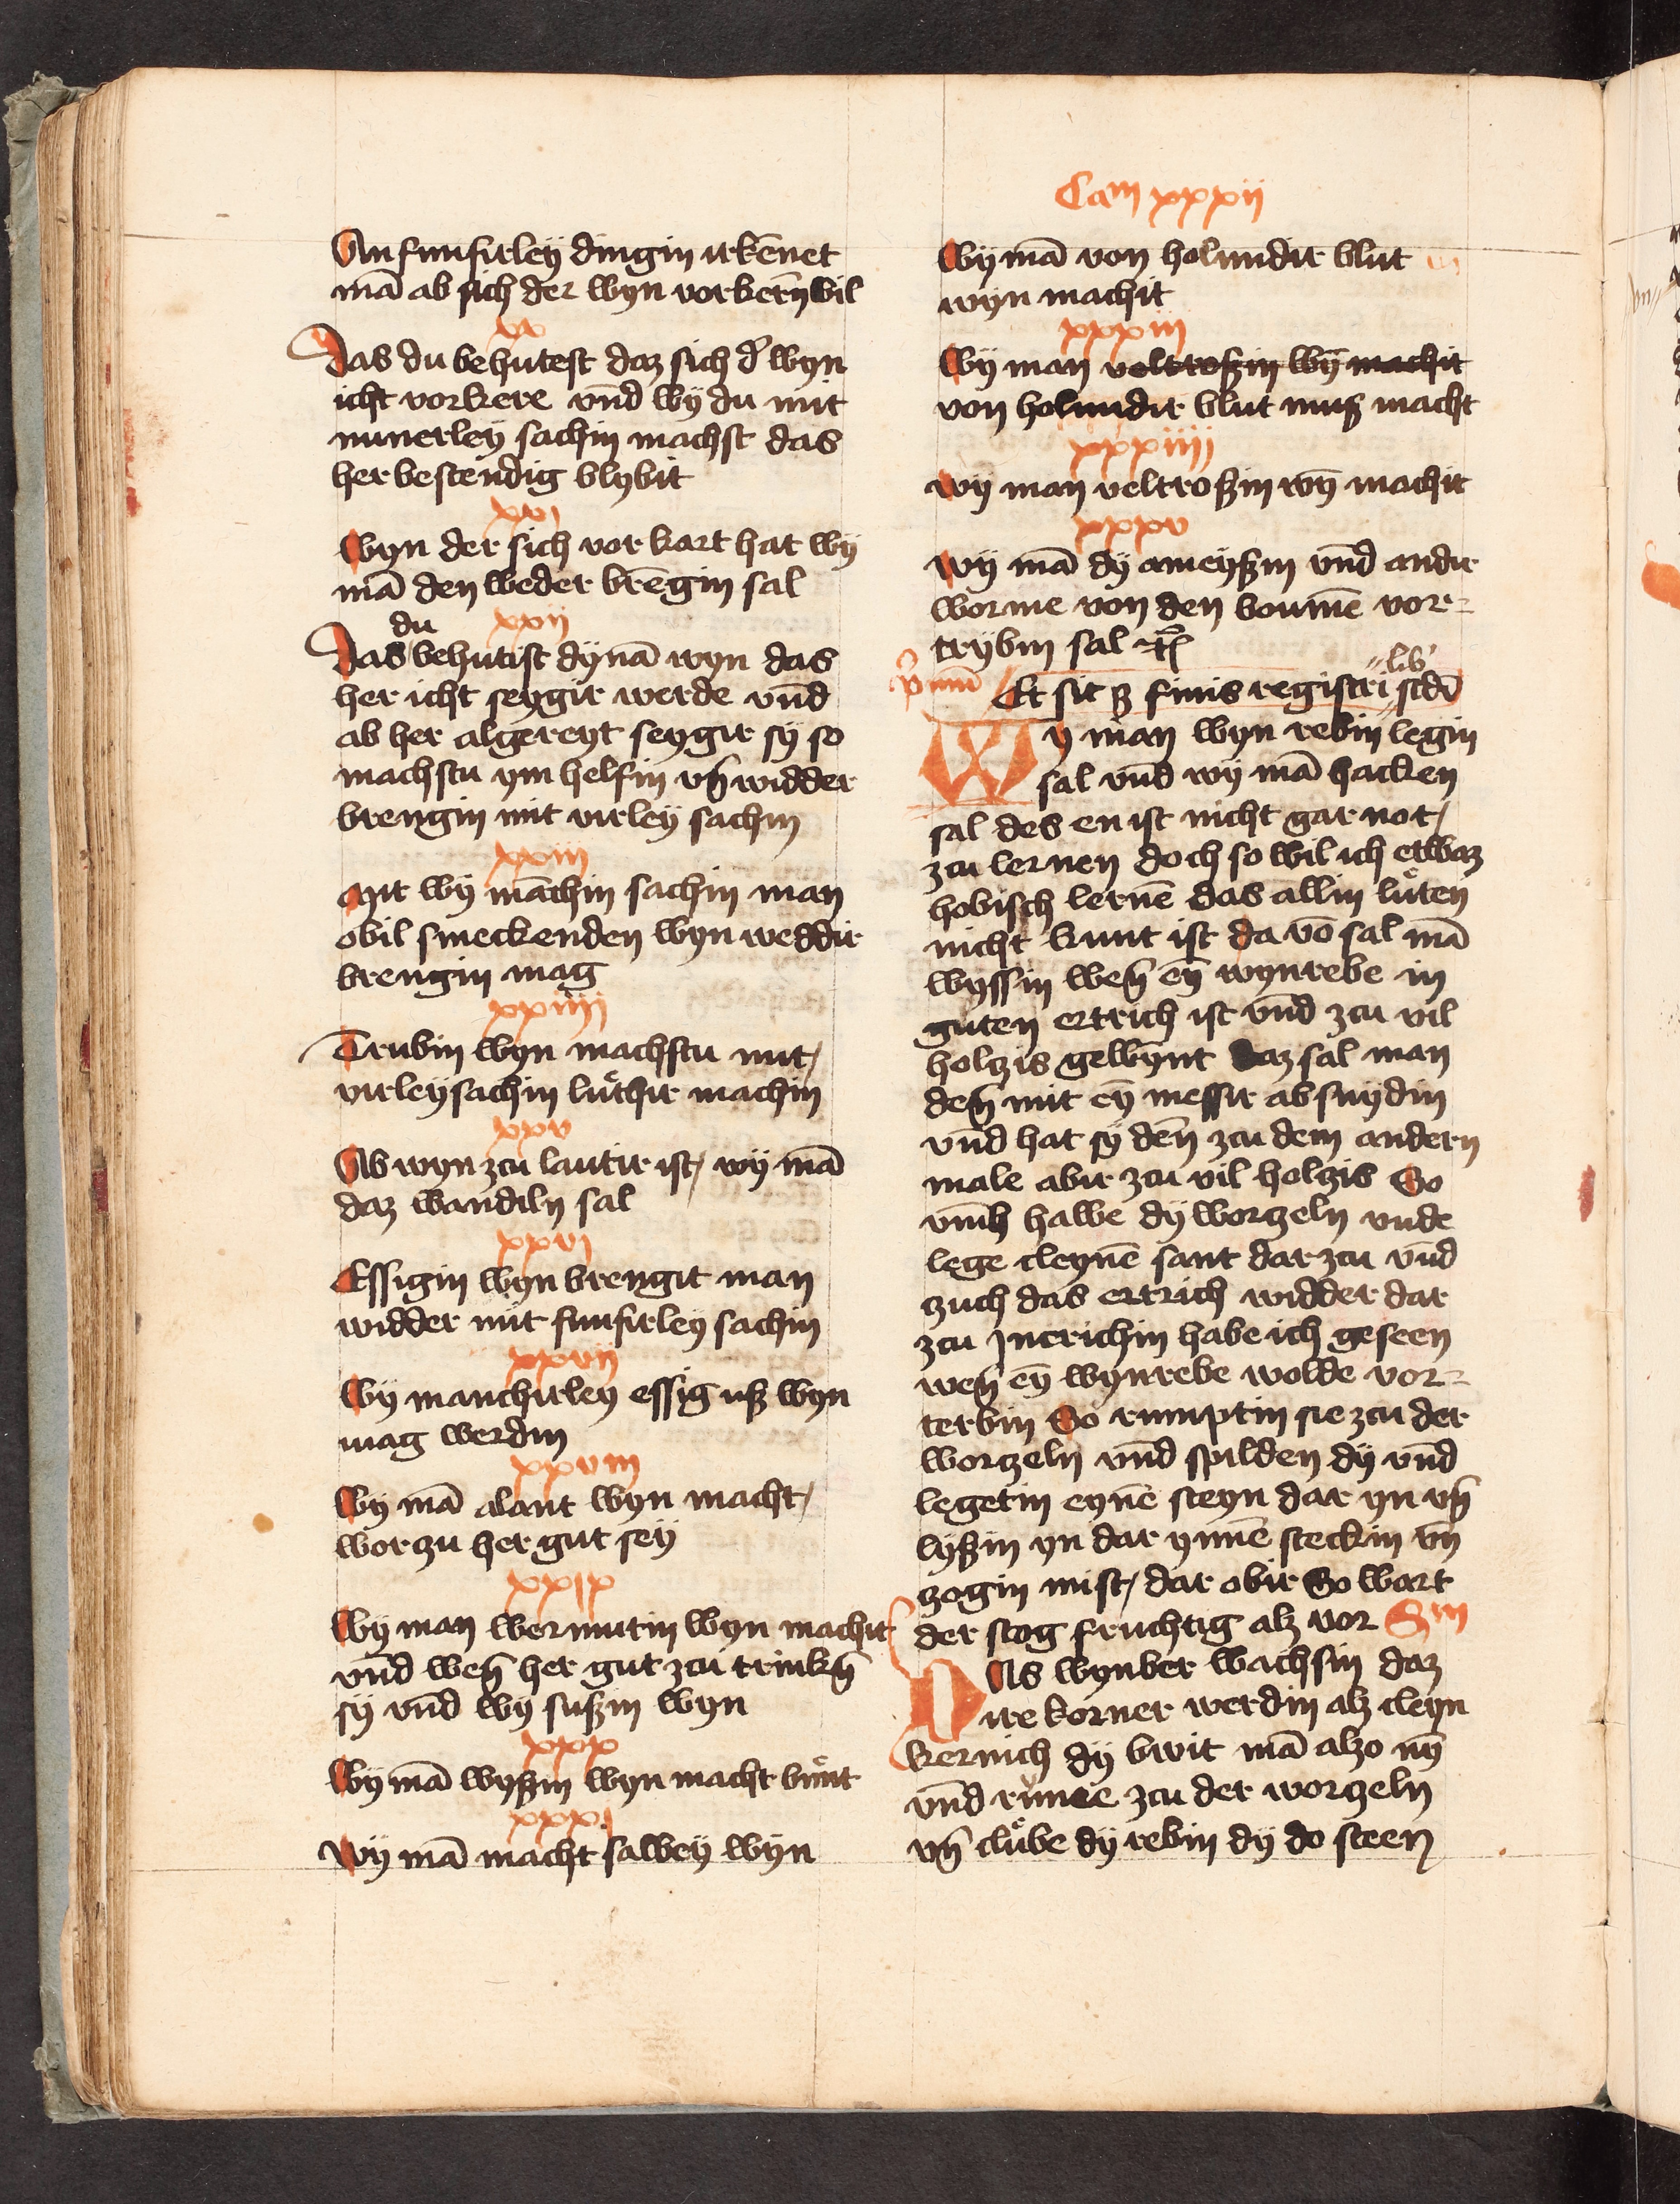 An funfirley dingin irkēnet
mā ab sich der wyn vorkerñ wil
xx
Das du behutest daz sich d' wyn
icht vorkere vnd wÿ du mit
nunerley sachin machst das
her bestendig blybit
xxi
Wyn der sich vorkart hat wÿ
mā den weder brēgin sal
xxii
Das du behutist dynā wyn das
her icht seygir werde vnd
ab her algereyt seygir sÿ so
machstu ym helfin vñ widder
brengin mit virley sachin
xxiii
Mit wÿ māchin sachin man
obil smeckenden wyn weddir
brengin mag
xxiiij
Trubin wyn machstu mit
virley sachin luthir machin
xxv
Ab wyn zcu lautir ist wÿ mā
daz wandiln sal
xxvi
Essigin wyn brengit man
widder mit funfirley sachin
xxvii
Wÿ manchirley essig uß wyn
mag werdin
xxviii
Wÿ mā alant wyn macht
worzu her gut sey
xxix
Wÿ man wermutin wyn machit
vnd weñ her gut zcu trinkñ
sÿ vnd wÿ sußin wyn
xxx
Wÿ mā wyßin wyn macht bunt
xxxi
Wÿ mā macht salbey wyn
Cam xxxii
Wÿ mā von holundir blut
wyn machit
xxxiii
Wÿ man veltroßin wȳ machit
von holundir blut muß macht
xxxiiij
Wÿ man veltroßin wȳ machit
xxxv
Wÿ mā dÿ ameyßin vnd andir
worme von den boumē vor=
trybin sal
Et sit ß finis registri lib' scdi
Wy man wyn rebin legin
sal vnd wÿ mā hacken
sal des en ist nicht gar not
zcu lernen doch so wil ich etwaz
hobisch lernē das allin luten
nicht kunt ist da vō sal mā
wyssin weñ eȳ wynrebe in
guten ertrich ist vnd zcu vil
holzis gewȳnt Daz sal man
deñ mit eȳ messir absnydin
vnd hat sÿ deñ zcu dem andern
male abir zcu vil holzis So
vmh hawe dÿ worzeln vnde
lege cleynē sant dar zcu vnd
zuch das ertrich widder dar
zcu Jncrichin habe ich geseen
weñ eȳ wynrebe wolde vor=
terbin So rumptin sie zcu der
worzeln vnd spilden dÿ vnd
legetin eynē steyn dar yn vñ
lyßin yn dar ynnē steckin vñ
zogin mist dar obir So wart
der stog fruchtig alz vor
Als wynber wachsin daz
ire korner werdin alz cleyn
kernich dÿ bwit mā alzo nȳ
vnd rume zcu der worzeln
vñ clube dÿ rebin dÿ do steen